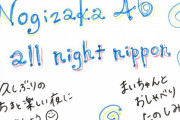 Nogizaka 46
all night nippon
久しぶりの
あきと楽しい夜に
しょう
まいちゃんと
おしゃべり
たのしみ